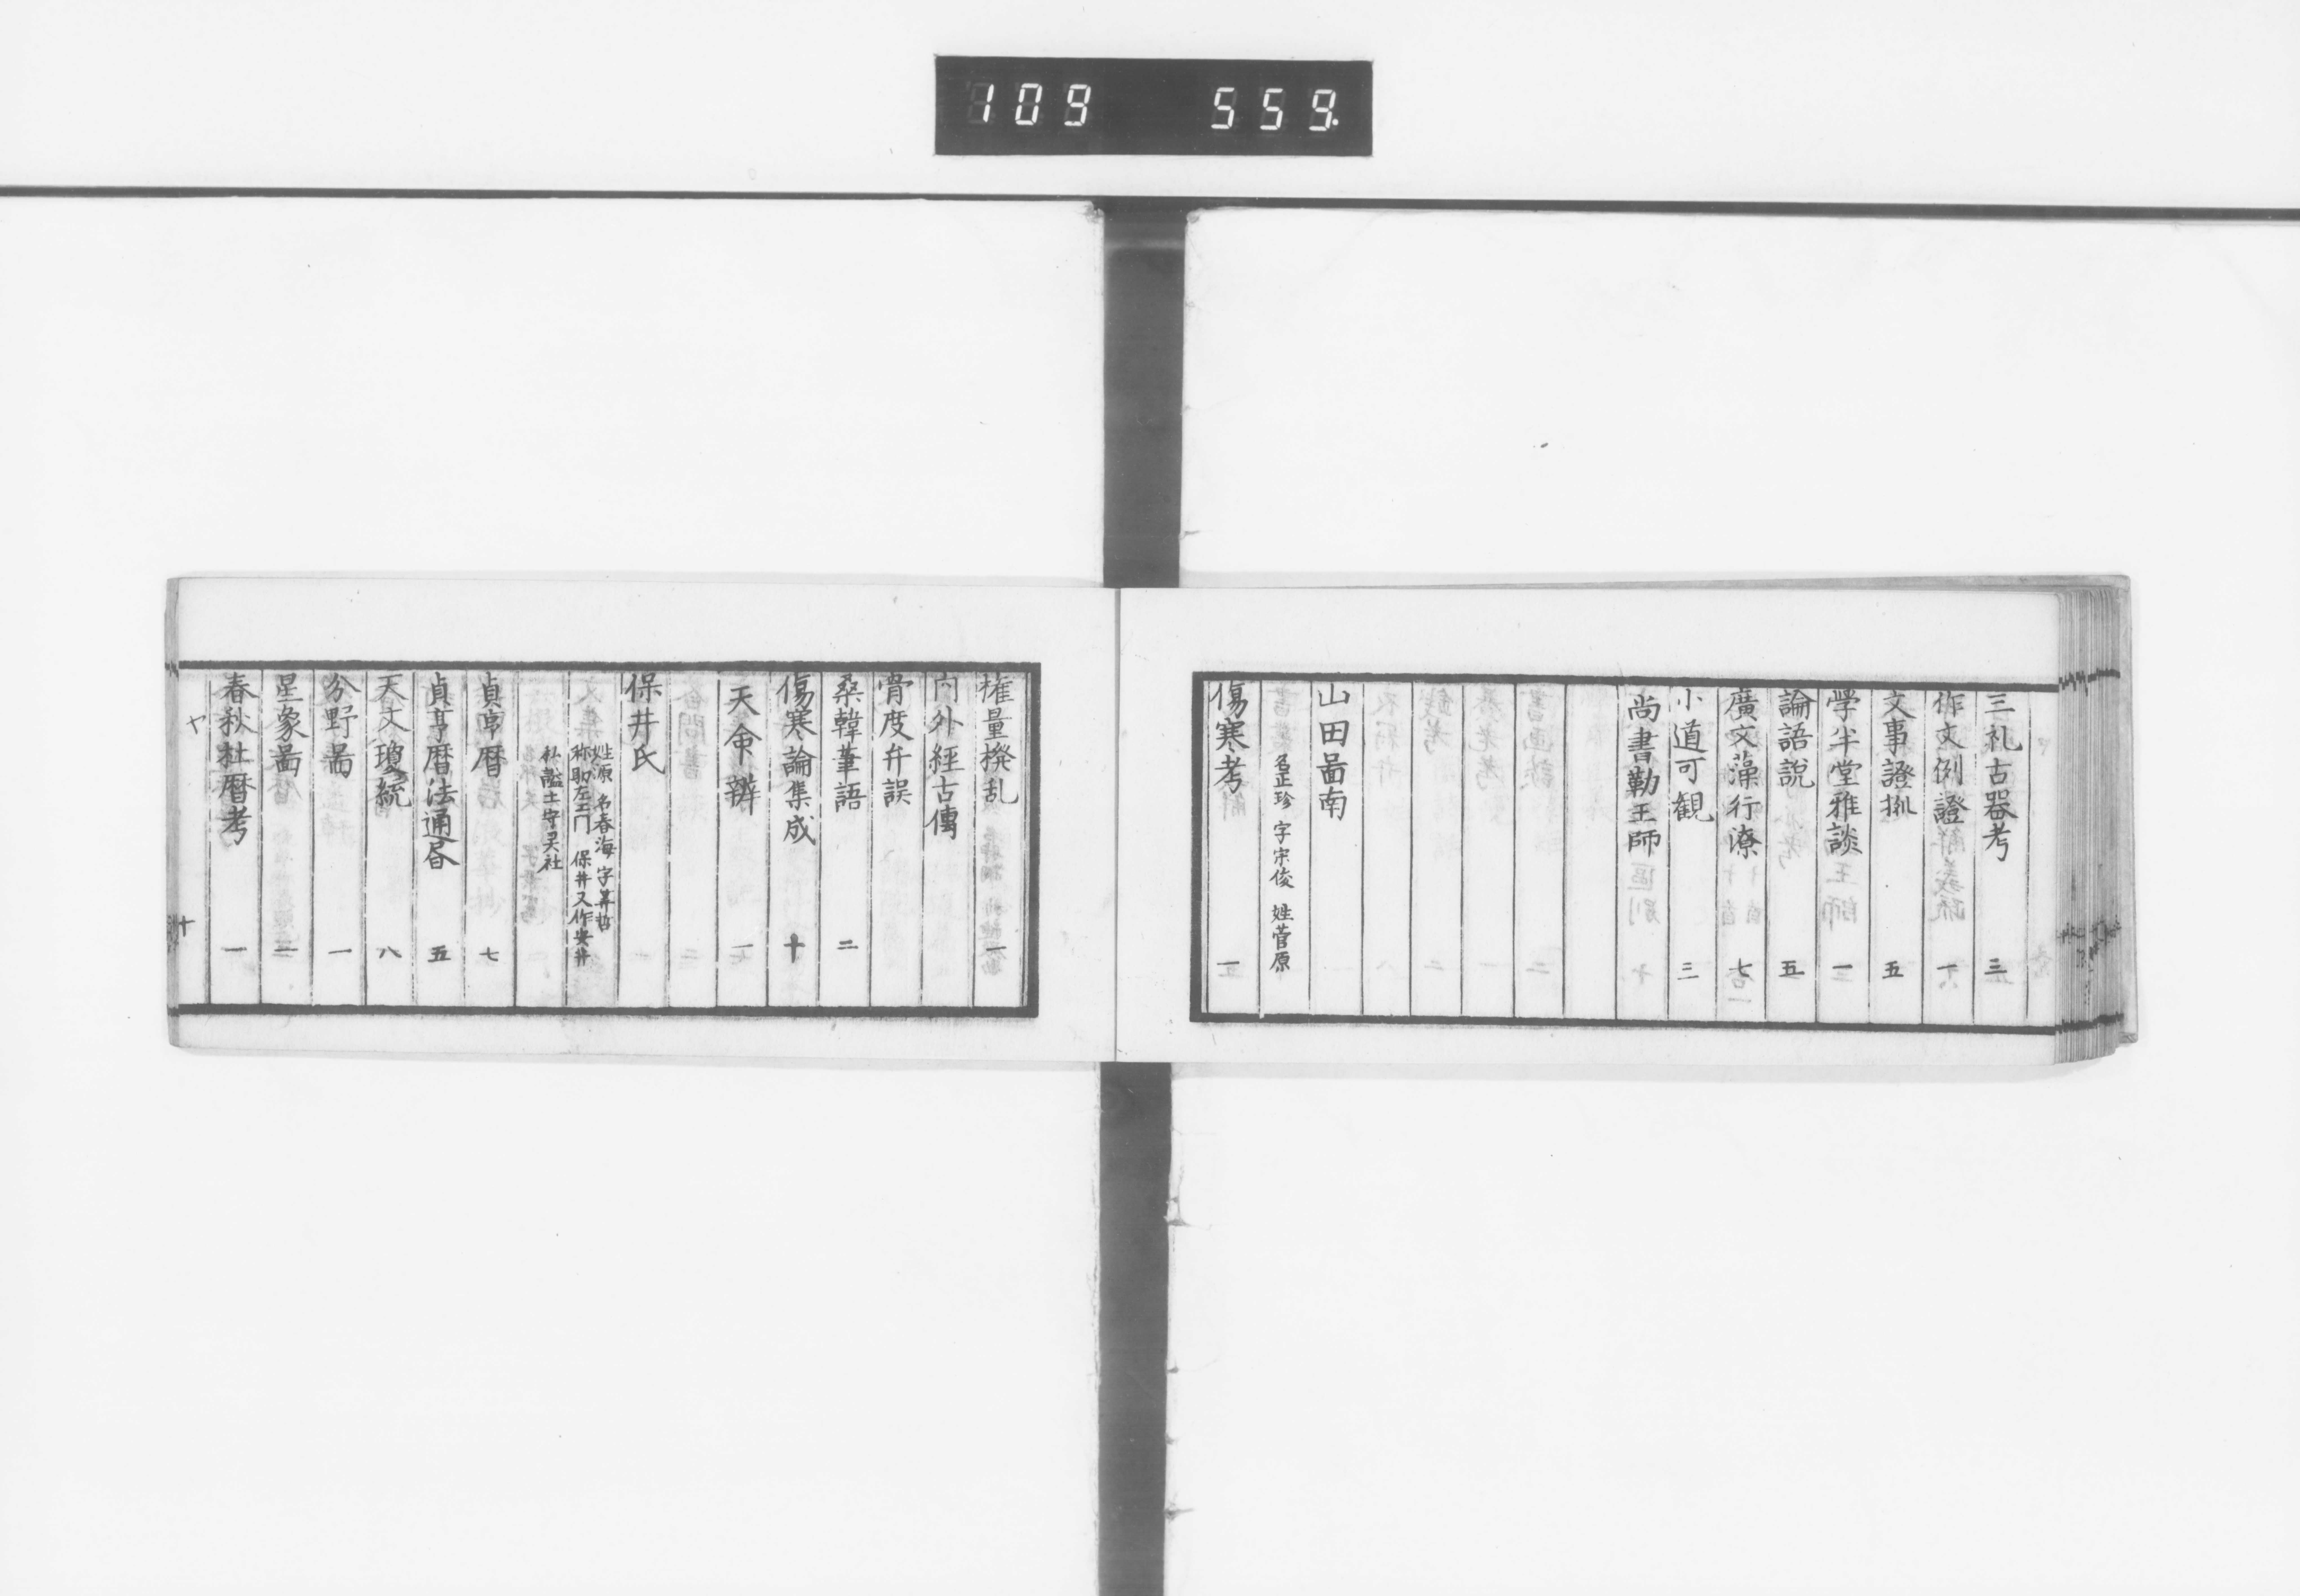 109 559.
三礼古器考 三
作文例證 一
文事證拠 五
学半堂雅談 一
論語説 五
廣文藻行潦 七
小道可観 三
尚書勤王師
山田啚南
名正珍 字宗俊 姓菅原
傷寒考 一
権量撥乱 一
内外經古傳
骨度弁誤
桑韓筆語 二
傷寒論集成 十
天命辨 一
保井氏
姓源 名春海 字算哲
称助左エ門 保井又作安井
私謚土守灵社
貞享暦 七
貞享暦法通 五
天文瓊統 八
分野啚 一
星象啚
春秋杜暦考 一
ヤ
十